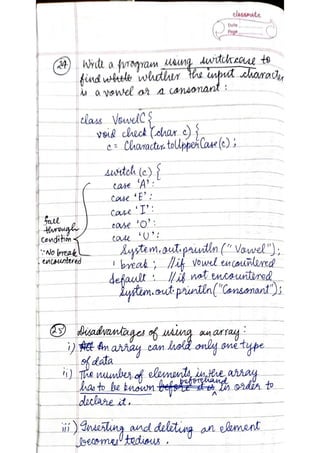 classmate
Date
Page
24 Write a program using switch case to
find whether the input character
is a vowel or a consonant :
class VowelC {
void check (char c) {
c = Character.toUpperCase(c) ;
switch (c) {
case 'A' :
case 'E' :
case 'I' :
case 'O' :
case 'U' :
fall
through
condition
∵ No break
encountered
System.out.println ("Vowel") ;
break ; // if vowel encountered
default : // if not encountered
System.out.println("Consonant") ;
25 Disadvantages of using an array :
i) An array can hold only one type
of data
ii) The number of elements in the array
has to be known beforehand in order to
declare it.
iii) Inserting and deleting an element
becomes tedious .